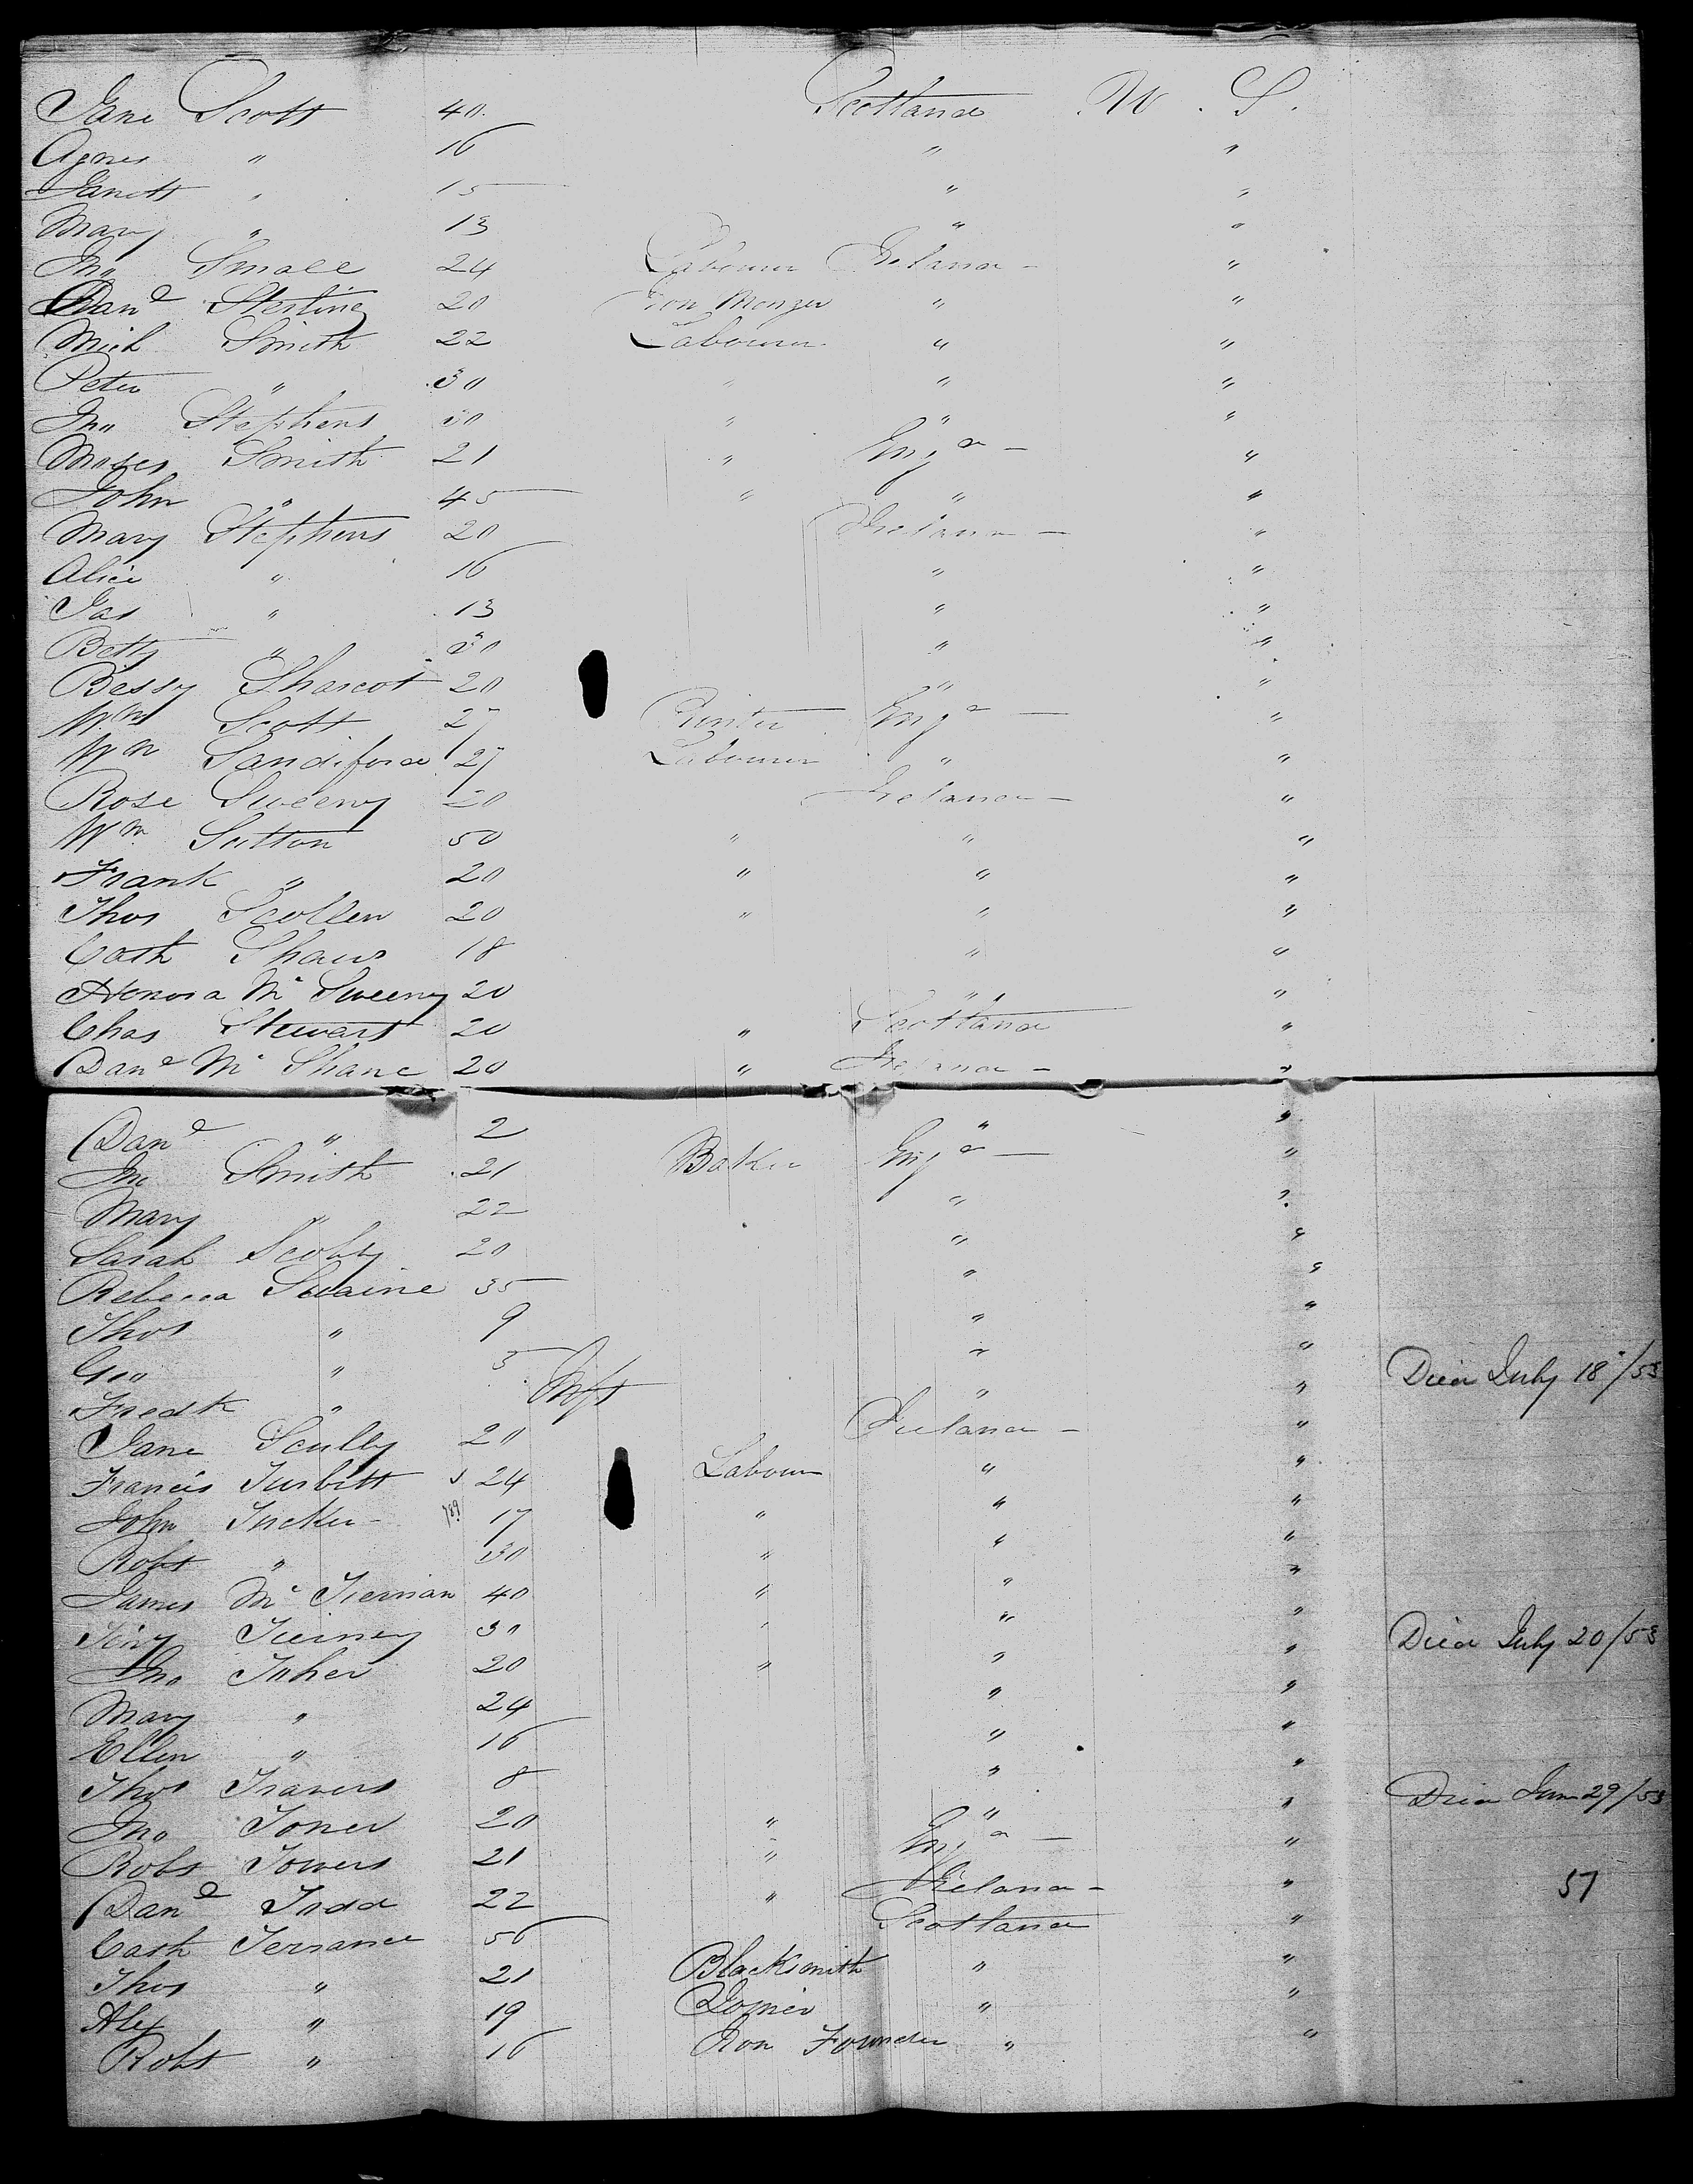 Jane Scott 40. Scotland U. S.
Agnes " 16 " "
Janett " 15 " "
Mary " 13 " "
Jno Small 24 Labourer Ireland - "
Danl Sterling 20 Iron Monger " "
Mich Smith 22 Labourer " "
Peter " 30 " " "
Jno Stephens 30 " " "
Moses Smith 21 " Engd - "
John " 45 " " "
Mary Stephens 20 Ireland - "
Alice " 16 " "
Jas " 13 " "
Betty " 30 " "
Bessy Sharcot 20 " "
Wm Scott 27 Printer Engd - "
Wm Sandiford 27 Labourer " "
Rose Sweeny 20 Ireland - "
Wm Sutton 50 " " "
Frank " 20 " " "
Thos Scollen 20 " " "
Cath Shaw 18 " "
Honora Mc Sweeny 20 " "
Chas Stewart 20 " Scotland "
Danl Mc Shane 20 " Ireland - "
Danl " 2 " "
Jno Smith 21 Baker Engd - "
Mary " 22 " "
Sarah Scoby 20 " "
Rebecca Swaine 35 " "
Thos " 9 " "
Geo " 3 " " Died July 18/53
Fredk " Inft " "
Jane Scully 20 Ireland - "
Francis Turbitt 24 Labour " "
John Tucker 17 " " "
Robt " 30 " " "
James Mc Tiernan 40 " " "
Tierney 30 " " " Died July 20/53
Jno Toher 20 " " "
Mary " 24 " "
Ellen " 16 " "
Thos Travers 8 " " Died June 29/53
Jno Toner 20 " " "
Robt Towers 21 " Engd - "
Danl Todd 22 " Ireland - " 57
Cath Terrance 56 Scotland "
Thos " 21 Blacksmith " "
Alex " 19 Joiner " "
Robt " 16 Iron Founder " "